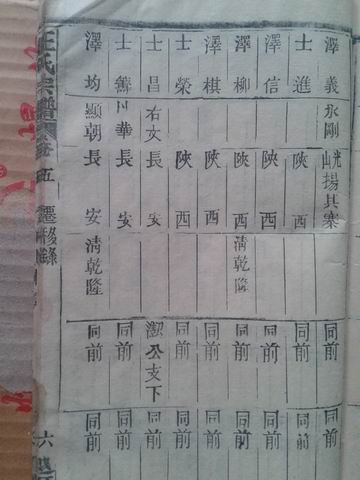 澤義 永剛 山揚其寨 同前 同前
士進 陝西 同前 同前
澤信 陝西 同前 同前
澤柳 陝西 清乾隆 同前 同前
澤棋 陝西 同前 同前
士榮 陝西 同前 同前
士昌 右文 長安 公支下 同前
士 華 長安 同前 同前
澤均 顯朝 長安 清乾隆 同前 同前
氏宗譜 五 遷移錄 六